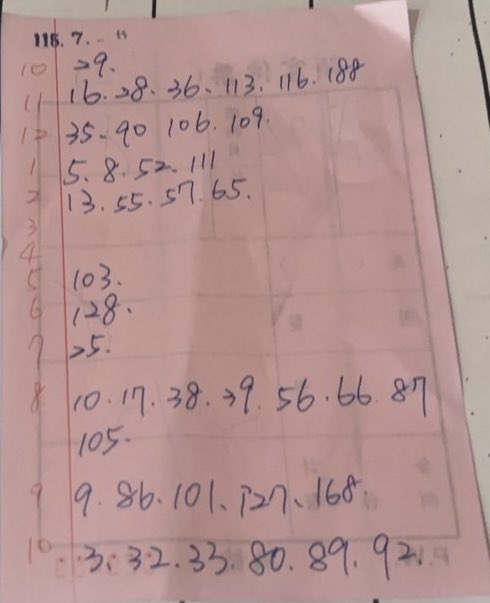 115. 7. - "
10 29.
11 16. 28. 36. 113. 116. 188
12 35 - 90 106. 109.
1 5. 8. 52. 111
2 13. 55. 57. 65.
3
4
5 103.
6 128.
7 25.
8 10. 17. 38. 39. 56. 66. 87
105.
9 9. 86. 101. 127. 168
10 3. 32. 33. 80. 89. 92.